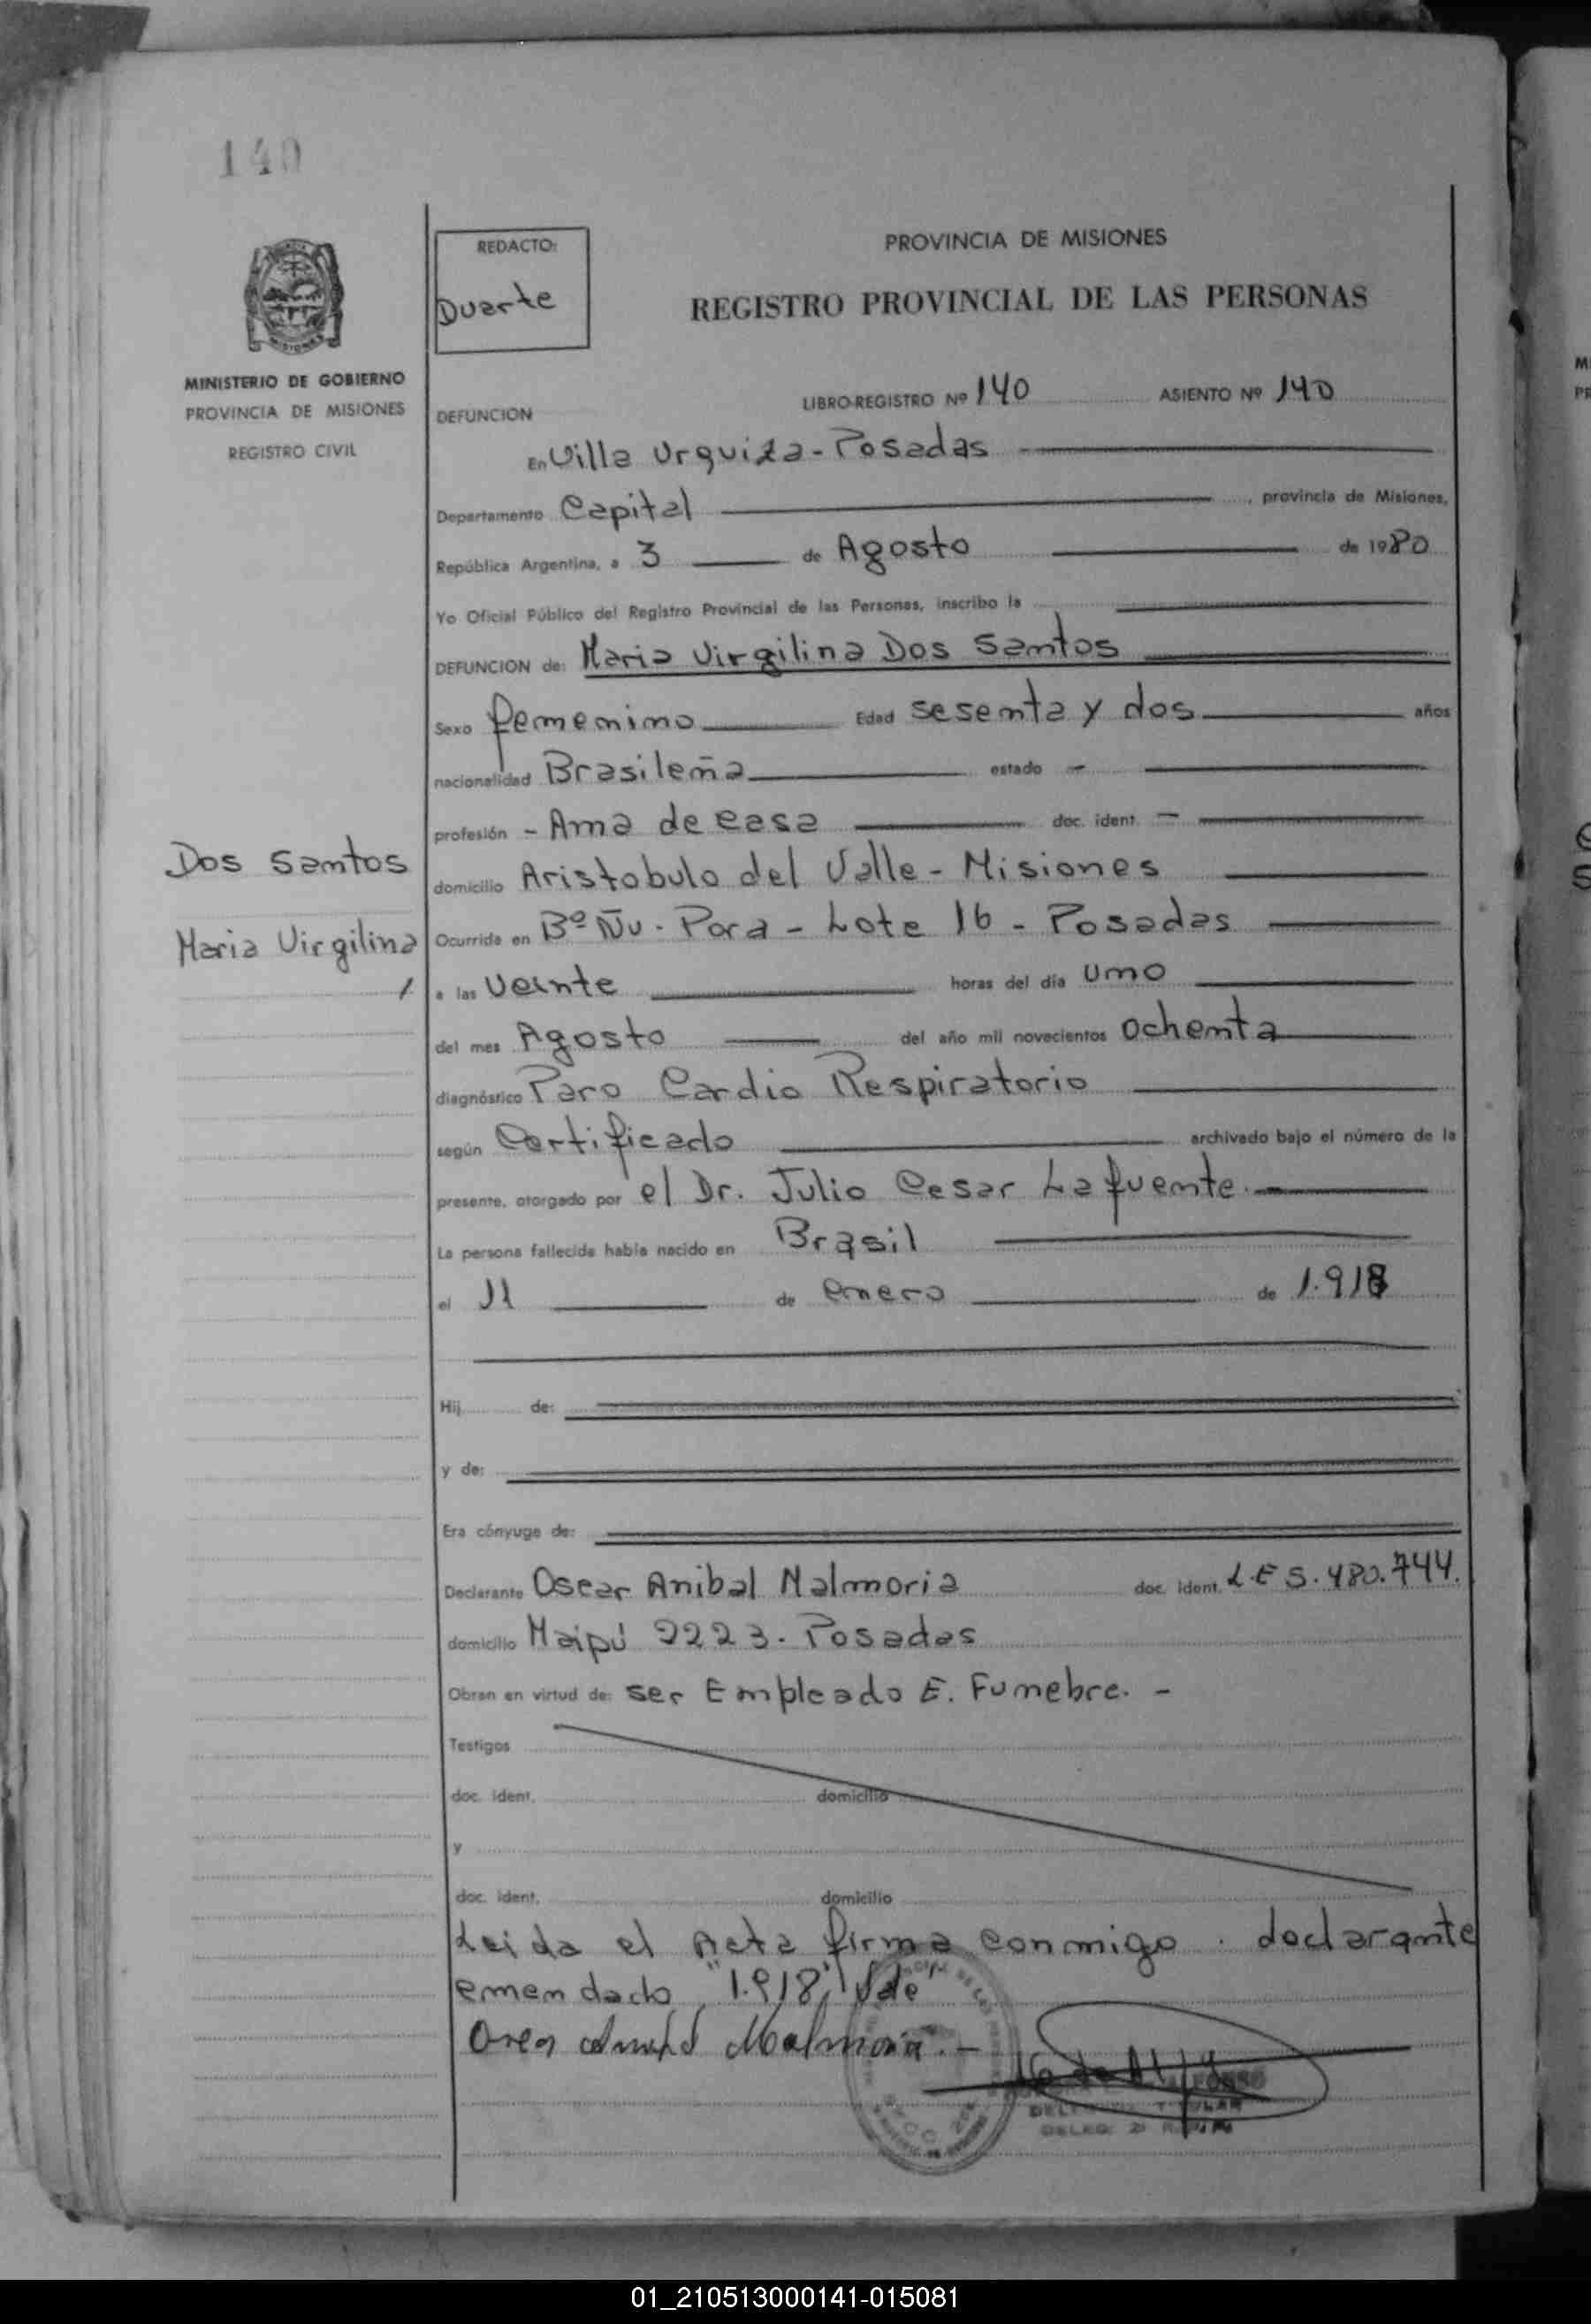 140
REDACTO:
Duarte
PROVINCIA DE MISIONES
REGISTRO PROVINCIAL DE LAS PERSONAS
MINISTERIO DE GOBIERNO
PROVINCIA DE MISIONES
REGISTRO CIVIL
DEFUNCION LIBRO-REGISTRO Nº 140 ASIENTO Nº 140
En Villa Urquiza - Posadas
Departamento Capital, provincia de Misiones,
República Argentina, a 3 de Agosto de 1980
Yo Oficial Público del Registro Provincial de las Personas, inscribo la
DEFUNCION de: Maria Virgilina Dos Santos
Sexo femenino Edad sesenta y dos años
nacionalidad Brasileña estado -
profesión - Ama de casa doc. ident. -
Dos Santos
Maria Virgilina
domicilio Aristobulo del Valle - Misiones
Ocurrida en Bº Ñu - Pora - Lote 16 - Posadas
a las Veinte horas del día uno
del mes Agosto del año mil novecientos ochenta
diagnóstico Paro Cardio Respiratorio
según Certificado archivado bajo el número de la
presente, otorgado por el Dr. Julio Cesar Lafuente. -
La persona fallecida había nacido en Brasil
el 11 de enero de 1.918
Hij de:
y de:
Era cónyuge de:
Declarante Oscar Anibal Malmoria doc. ident. L E 5.480.744.
domicilio Maipú 2223. Posadas
Obran en virtud de: ser Empleado E. Funebre. -
Testigos
doc. ident. domicilio
y
doc. ident. domicilio
Leida el Acta firma conmigo . declarante
enmendado "1.918"
Malmoria. -
DELEG.
01_210513000141-015081